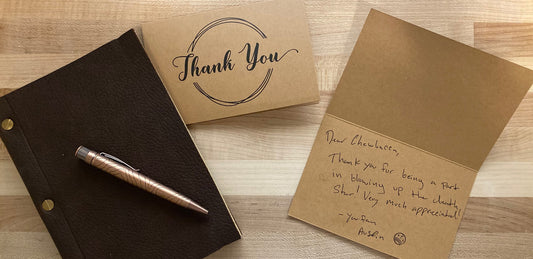 Thank You
Dear Chewbacca,
Thank you for being a part
in blowing up the death
Star! Very much appreciated!
- your fan
Austin